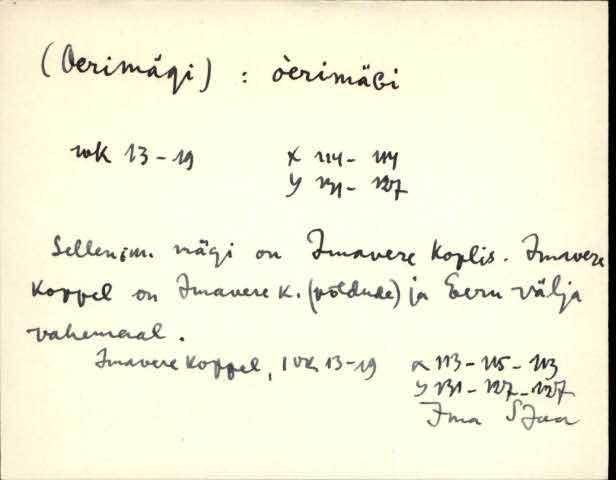 (Oerimägi) : òerimäGi
wk 13-19 x 114 - 114
y 131 - 127
Sellenim. mägi on Imavere Koplis. Imavere
Koppel on Imavere k. (põldude) ja Eeru välja
vahemaal.
Imavere Koppel, wk 13-19 x 113 - 115 - 113
y 131 - 127 - 127